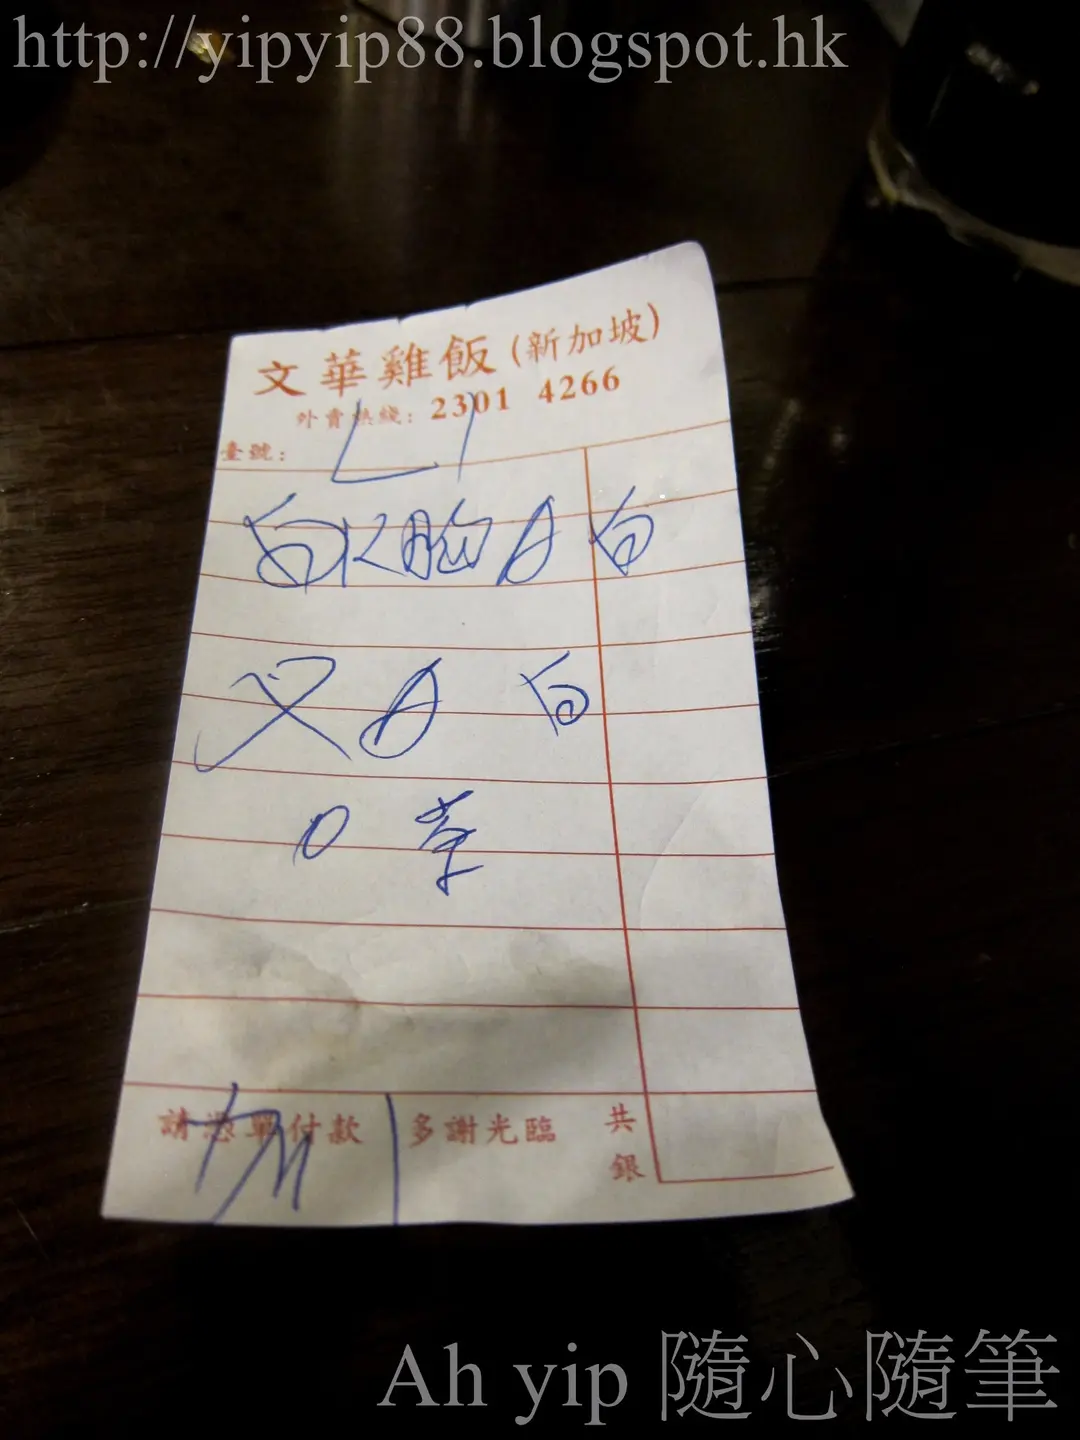 http://yipyip88.blogspot.hk
文華雞飯(新加坡)
外賣熱綫: 2301 4266
臺號: L1
白水胸A 白
叉A 白
請憑單付款 多謝光臨 共銀
Ah yip 隨心隨筆